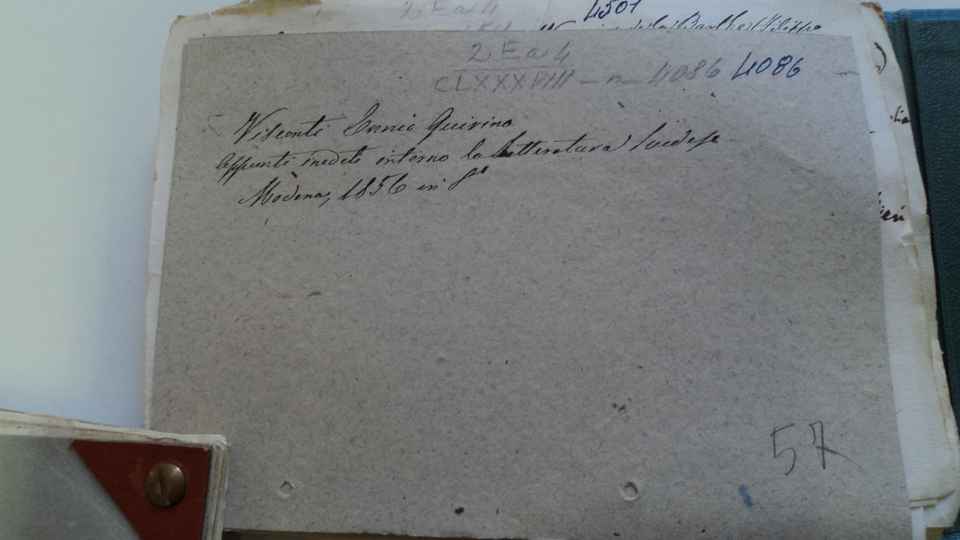 2 E a 4
4501
2 E a 4
CLXXXVIII - n 4086 4086
Visconti Ennio Quirino
Appunti inediti intorno la letteratura Svedese
Modena, 1856 in 8°
57